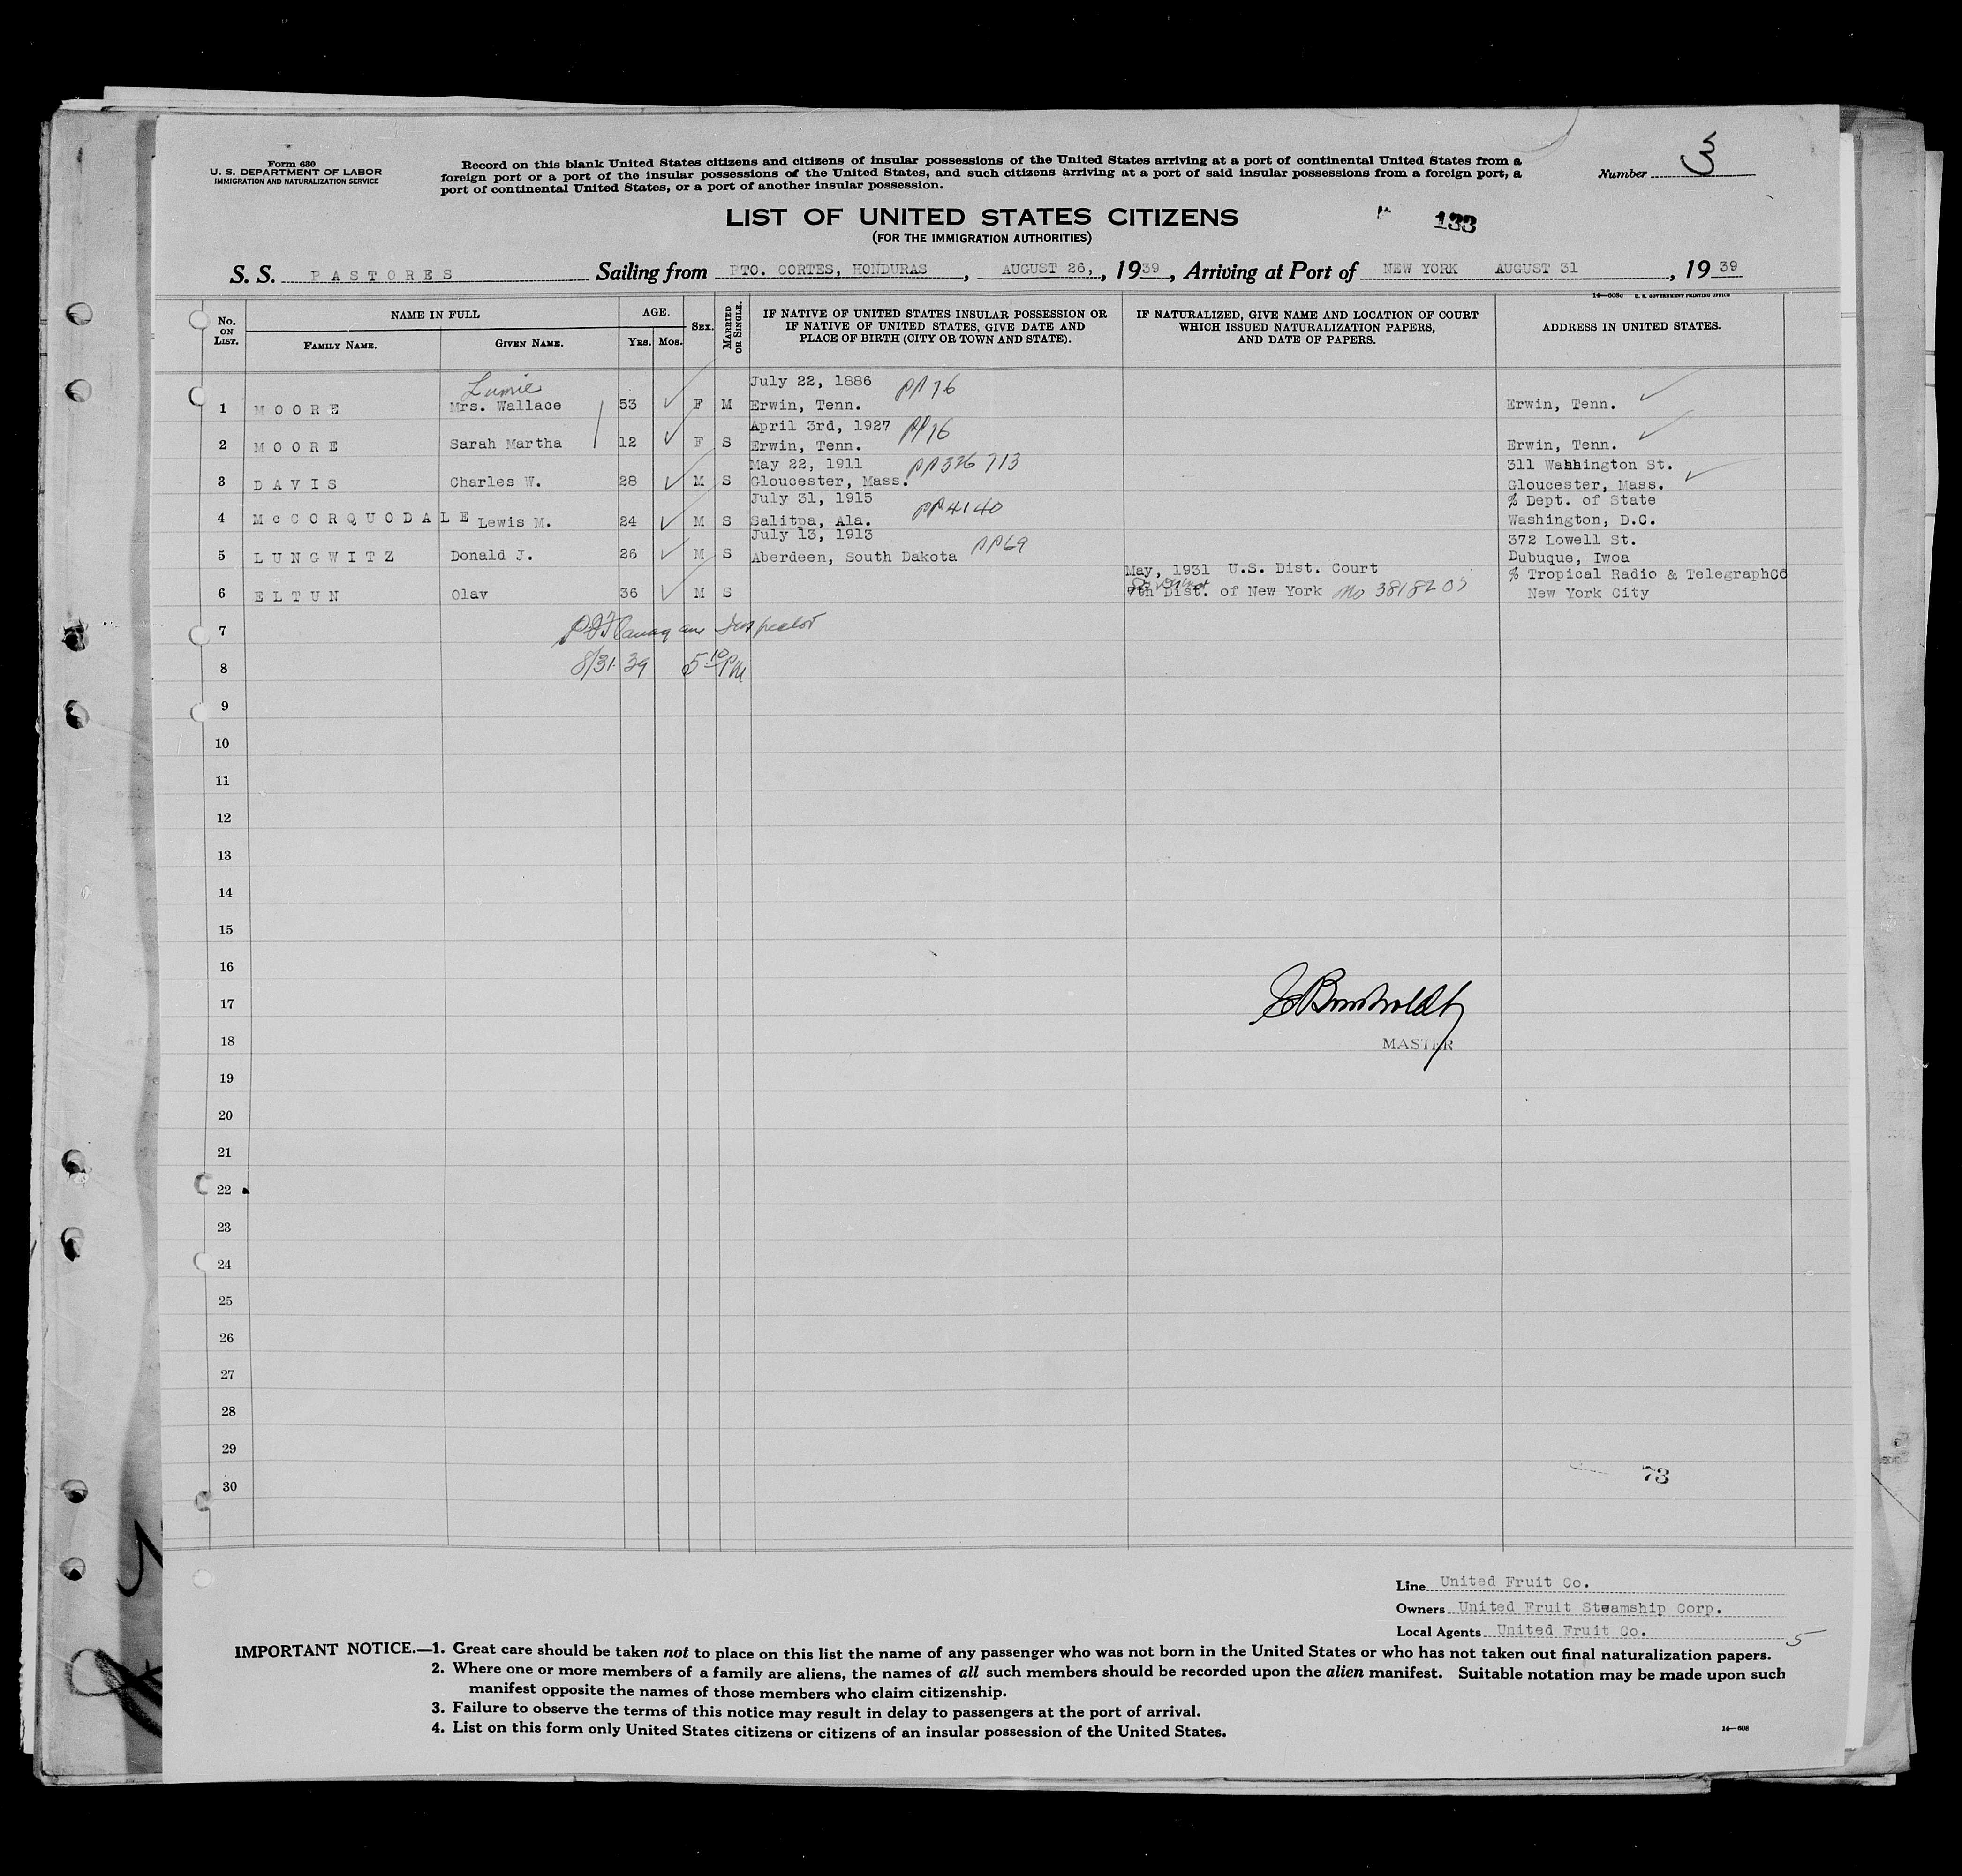 Form 630
U. S. DEPARTMENT OF LABOR
IMMIGRATION AND NATURALIZATION SERVICE
Record on this blank United States citizens and citizens of insular possessions of the United States arriving at a port of continental United States from a
foreign port or a port of the insular possessions of the United States, and such citizens arriving at a port of said insular possessions from a foreign port, a
port of continental United States, or a port of another insular possession.
Number 3
LIST OF UNITED STATES CITIZENS
(FOR THE IMMIGRATION AUTHORITIES)
133
S. S. PASTORES Sailing from PTO. CORTES, HONDURAS, AUGUST 26,, 1939, Arriving at Port of NEW YORK AUGUST 31, 1939
14—608c U. S. GOVERNMENT PRINTING OFFICE
No. ON LIST. NAME IN FULL FAMILY NAME. GIVEN NAME. AGE. Yrs. Mos. SEX. MARRIED OR SINGLE. IF NATIVE OF UNITED STATES INSULAR POSSESSION OR IF NATIVE OF UNITED STATES, GIVE DATE AND PLACE OF BIRTH (CITY OR TOWN AND STATE). IF NATURALIZED, GIVE NAME AND LOCATION OF COURT WHICH ISSUED NATURALIZATION PAPERS, AND DATE OF PAPERS. ADDRESS IN UNITED STATES.
July 22, 1886 PP 76
1 MOORE Mrs. Wallace 53 F M Erwin, Tenn. Erwin, Tenn.
April 3rd, 1927 PP 76
2 MOORE Sarah Martha 12 F S Erwin, Tenn. Erwin, Tenn.
May 22, 1911 PP 326713 311 Washington St.
3 DAVIS Charles W. 28 M S Gloucester, Mass. Gloucester, Mass.
July 31, 1915 PP 4140 % Dept. of State
4 McCORQUODALE Lewis M. 24 M S Salitpa, Ala. Washington, D.C.
July 13, 1913 372 Lowell St.
5 LUNGWITZ Donald J. 26 M S Aberdeen, South Dakota PP69 Dubuque, Iwoa
May, 1931 U.S. Dist. Court % Tropical Radio & TelegraphCo
6 ELTUN Olav 36 M S 7th Dist. of New York No 3818205 New York City
7 Inspector
8 8/31 39 5 10 PM
9
10
11
12
13
14
15
16
17
18 MASTER
19
20
21
22
23
24
25
26
27
28
29
30
73
Line United Fruit Co.
Owners United Fruit Steamship Corp.
Local Agents United Fruit Co.
5
IMPORTANT NOTICE.—1. Great care should be taken not to place on this list the name of any passenger who was not born in the United States or who has not taken out final naturalization papers.
2. Where one or more members of a family are aliens, the names of all such members should be recorded upon the alien manifest. Suitable notation may be made upon such
manifest opposite the names of those members who claim citizenship.
3. Failure to observe the terms of this notice may result in delay to passengers at the port of arrival.
4. List on this form only United States citizens or citizens of an insular possession of the United States.
14—608